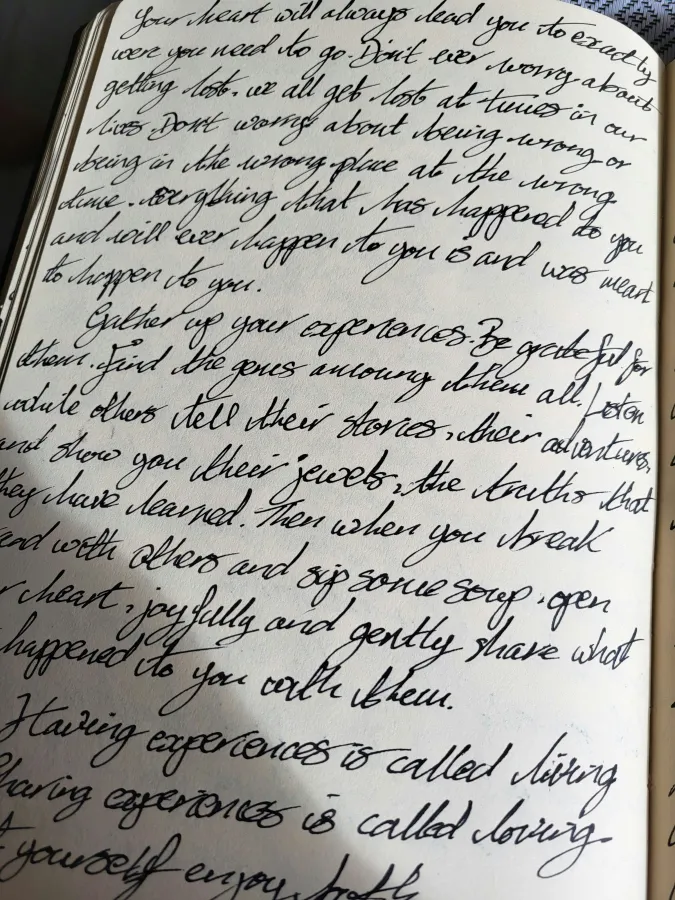 Your heart will always lead you to exactly
were you need to go. Don't ever worry about
getting lost, we all get lost at times in our
lives. Don't worry about being wrong or
being in the wrong place at the wrong
time. Everything that has happened to you
and will ever happen to you is and was meant
to happen to you.
Gather up your experiences. Be grateful for
them. Find the gems among them all. Listen
while others tell their stories, their adventures,
and show you their jewels, the truths that
they have learned. Then when you break
and with others and sip some soup, open
r heart, joyfully and gently share what
happened to you with them.
Having experiences is called living
Sharing experiences is called loving.
t yourself enjoy both